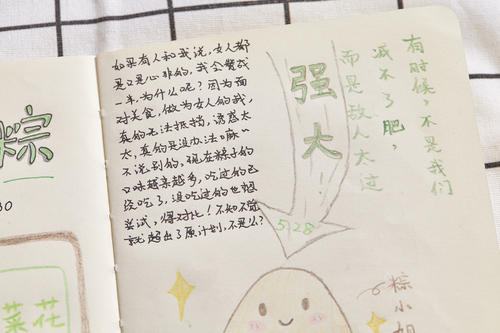 粽
30
菜花
如果有人和我说，女人都
是口是心非的，我会赞成
一半，为什么呢？因为面
对美食，做为女人的我，
真的无法抵挡，诱惑太
大，真的是没办法嘛~
不说别的，现在粽子的
口味越来越多，吃过的已
经吃了，没吃过的也想
尝试，得对比！不知不觉
就超出了原计划，不是么？
有时候，不是我们
减不了肥，
而是敌人太过
强大
5.28
粽小姐